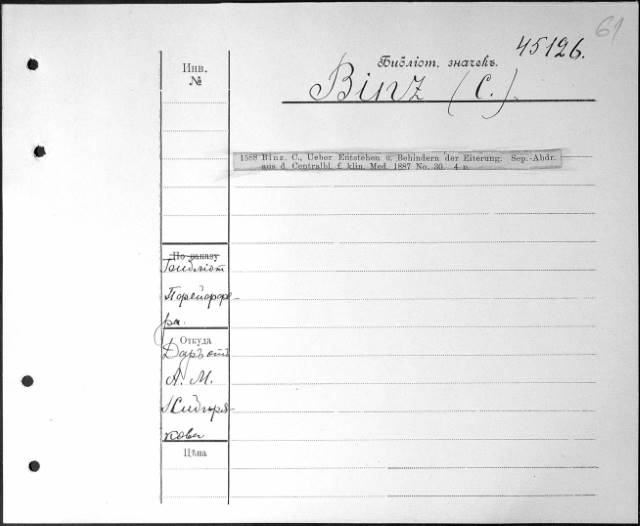 61
45126.
Библіот. значекъ.
Инв.
№
Binz (C.).
1588 Binz. C., Ueber Entstehen u. Behindern der Eiterung. Sep.-Abdr.
aus d. Centralbl. f. klin. Med. 1887 No. 30. 4 p.
По заказу
Библіот
Порейорфе-
ра.
Откуда
Даръ отъ
А. М.
Жидиря-
кова
Цѣна